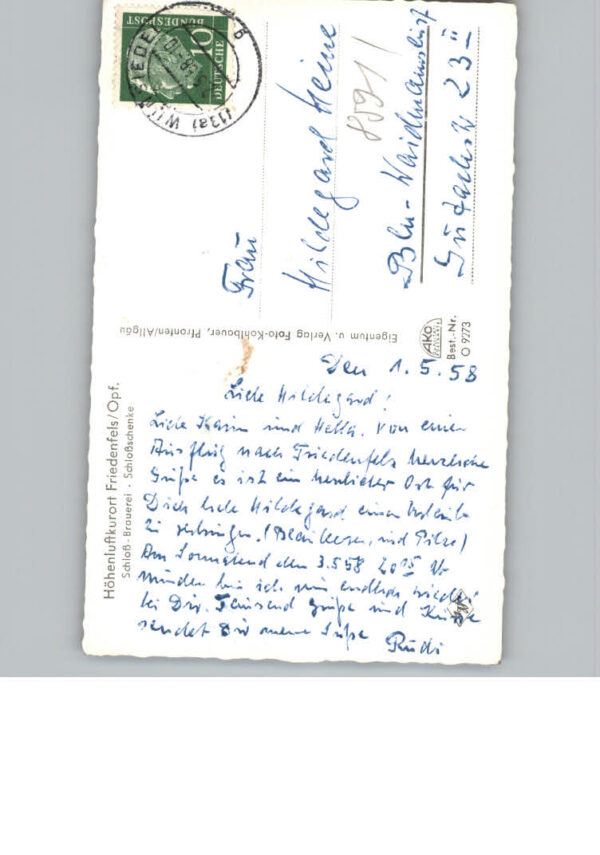 DEUTSCHE
BUNDESPOST
10
(13a) WUNSIEDEL
Frau
Hildegard Heine
8591
Bln-Waidmannslust
23 II
Eigentum u. Verlag Foto-Kohlbauer, Pfronten/Allgäu
AKO
Best.-Nr.
O 9273
Höhenluftkurort Friedenfels/Opf.
Schloß-Brauerei · Schloßschenke
Den 1.5.58
Liebe Hildegard!
Liebe Karin und Hella. Von einem
Ausflug nach Friedenfels herzliche
Grüße es ist ein herrlicher Ort für
Dich liebe Hildegard einen Urlaub
zu verbringen. (Blaubeeren und Pilze)
Am Sonnabend den 3.5.58 20 15 Uhr
bin ich nun endlich wieder
bei Dir. Tausend Grüße und Küsse
sendet Dir meine Süße Rudi